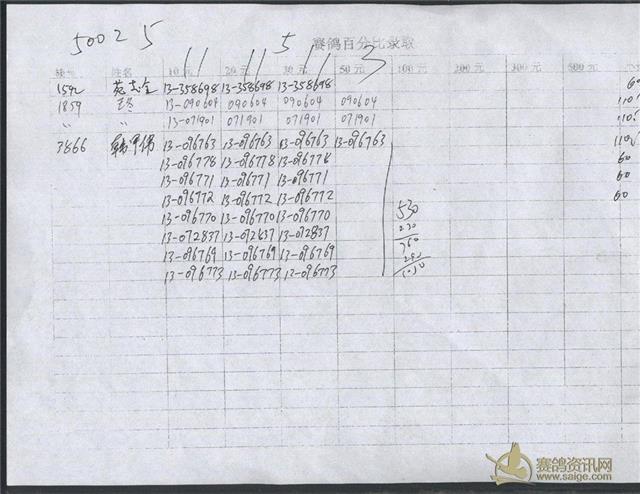 50025
11 11 5 11 3
赛鸽百分比录取
棚号 姓名 10元 20元 30元 50元 100元 200元 300元 500元
1592 13-358698 13-358698 13-358698 60
1859 13-090604 090604 090604 090604 110
〃 〃 13-071901 071901 071901 071901 110
3866 13-096763 13-096763 13-096763 13-096763 110
13-096778 13-096778 13-096778 60
13-096771 13-096771 13-096771 60
13-096772 13-096772 13-096772 60
13-096770 13-096770 13-096770 530
13-072837 13-072837 13-072837 230
13-096769 13-096769 13-096769
13-096773 13-096773 13-096773
赛鸽资讯网
www.saige.com